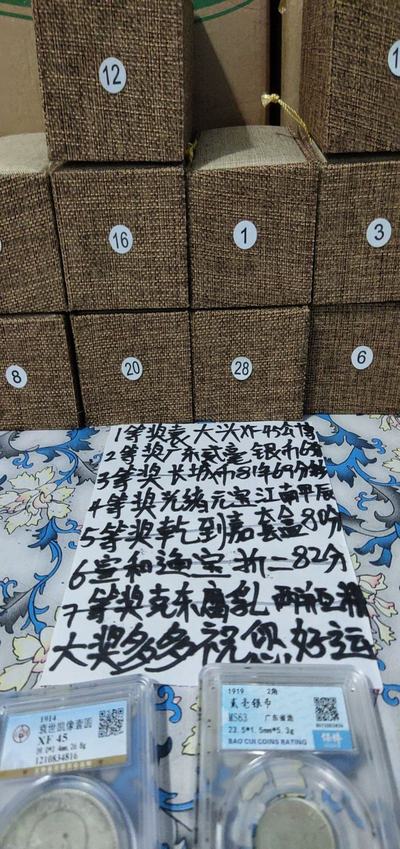 12
1
16
1
3
8
20
28
6
1等奖袁大头XF45公博
2等奖广东贰毫银币6
3等奖长城币81年69分
4等奖光绪元宝江南甲辰
5等奖乾到嘉套盒80分
6宣和通宝折二82分
7等奖克东腐乳两
大奖多多祝您好运
1914
袁世凯像壹圆
XF 45
26.8g
1210834816
1919 2角
贰毫银币
MS63 广东省造
23.5*1.5mm*5.3g
BAO CUI COINS RATING
保粹